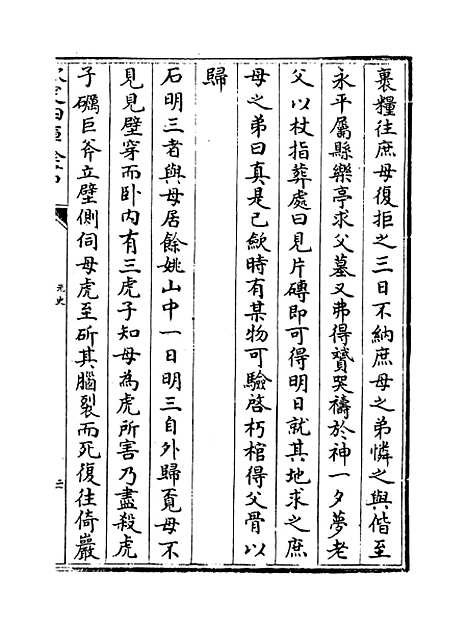 裹糧往庶母復拒之三日不納庶母之弟憐之與偕至
永平屬縣樂亭求父墓又弗得贇哭禱於神一夕夢老
父以杖指葬處曰見片磚即可得明日就其地求之庶
母之弟曰真是已歛時有某物可驗啓朽棺得父骨以
歸
石明三者與母居餘姚山中一日明三自外歸覓母不
見見壁穿而卧内有三虎子知母為虎所害乃盡殺虎
子礪巨斧立壁側伺母虎至斫其腦裂而死復往倚巖
元史
二